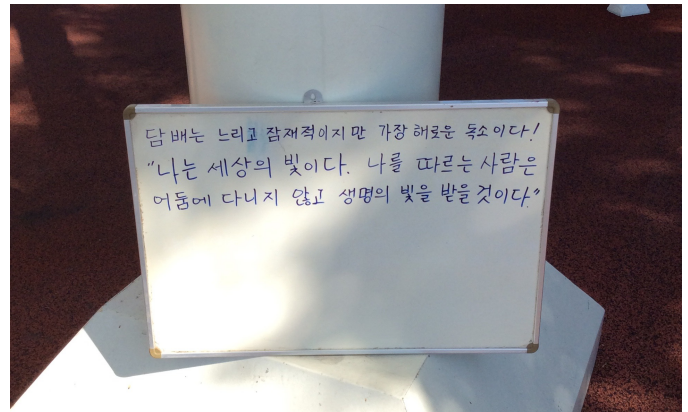 담배는 느리고 잠재적이지만 가장 해로운 독소이다!
"나는 세상의 빛이다. 나를 따르는 사람은
어둠에 다니지 않고 생명의 빛을 받을 것이다"